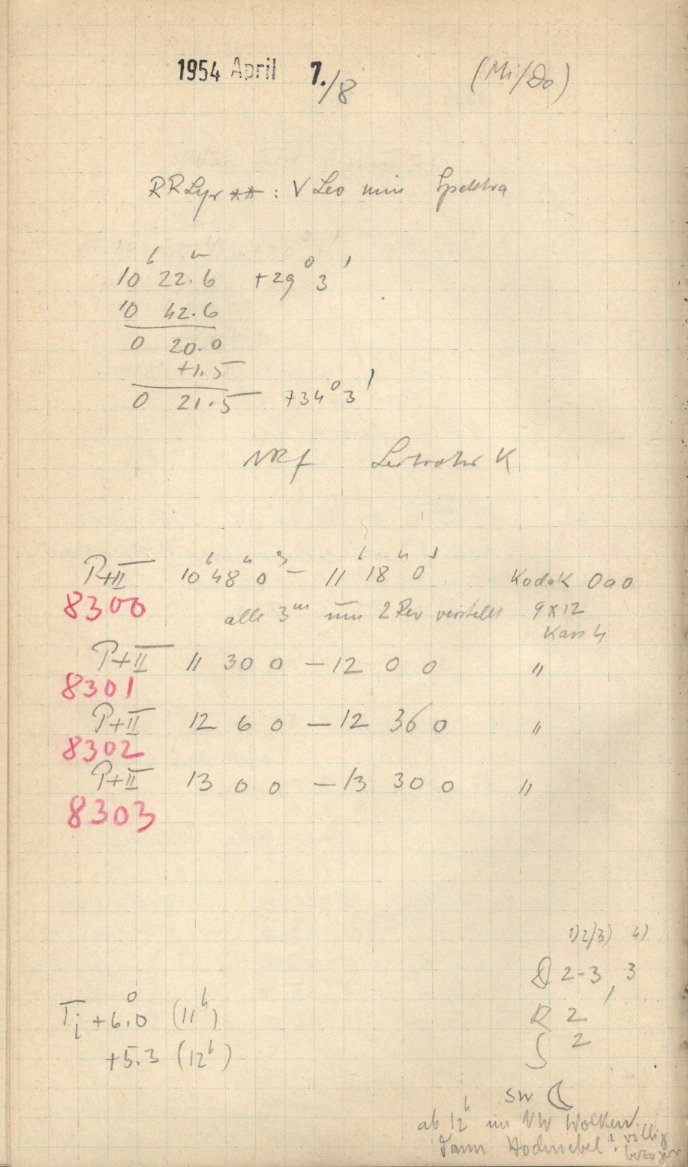 1954 April 7./8 (Mi/Do)
RR Lyr **: V Leo min Spektra
10ʰ 22.6ᵐ +29° 3'
10 42.6
0 20.0
+1.5
0 21.5 +34° 3'
Leitrohr K
P+II 10ʰ 48ᵐ 0ˢ – 11ʰ 18ᵐ 0ˢ Kodak OaO
8300 alle 3ᵐ um 2 Rev verstellt 9x12
Kass 4
P+II 11 30 0 – 12 0 0 "
8301
P+II 12 6 0 – 12 36 0 "
8302
P+II 13 0 0 – 13 30 0 "
8303
1)2)3) 4)
2-3, 3
Ti +6.0° (11ʰ) R 2
+5.3 (12ʰ) S 2
SW ☾
ab 12ʰ im NW Wolken.
Dann Hochnebel! völlig
bezogen